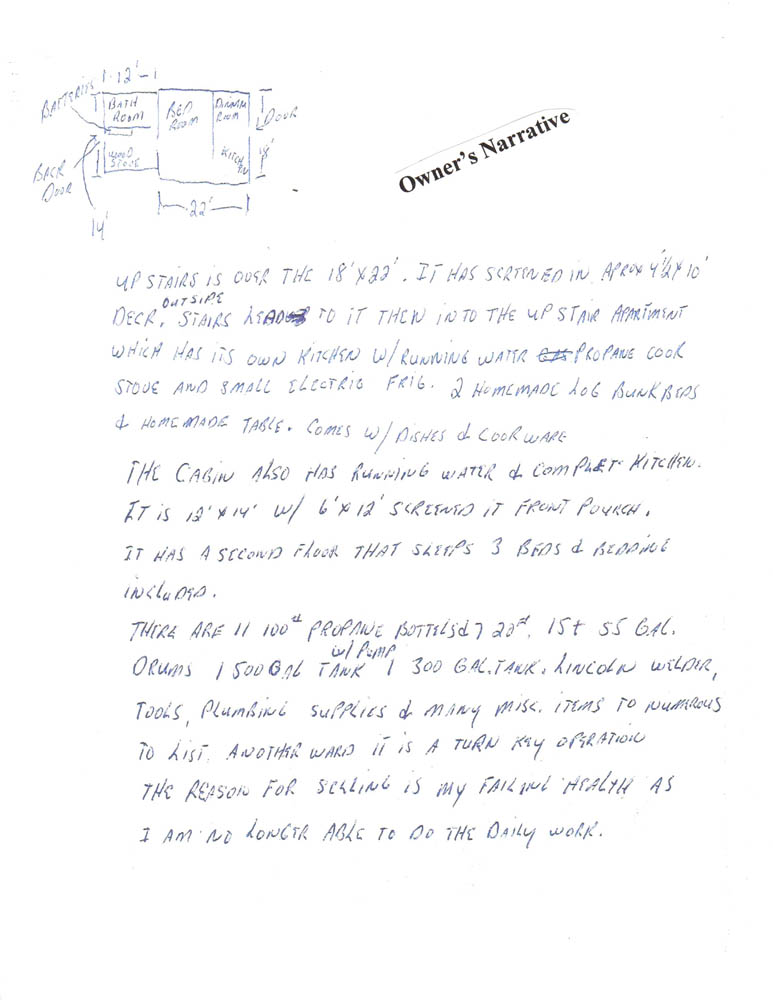 BATTERIES
1-12'-1
BATH ROOM
BED ROOM
DINING ROOM
DOOR
WOOD STOVE
KITCHEN
18'
BACK DOOR
14'
22'
Owner's Narrative
UP STAIRS IS OVER THE 18' X 22'. IT HAS SCREENED IN APROX 4'½ X 10'
DECK. OUTSIDE STAIRS LEAD TO IT THEN INTO THE UP STAIR APARTMENT
WHICH HAS ITS OWN KITCHEN W/ RUNNING WATER PROPANE COOK
STOVE AND SMALL ELECTRIC FRIG. 2 HOMEMADE LOG BUNKBEDS
& HOMEMADE TABLE. COMES W/ DISHES & COOKWARE
THE CABIN ALSO HAS RUNNING WATER & COMPLET KITCHEN.
IT IS 12' X 14' W/ 6' X 12' SCREENED IT FRONT POURCH.
IT HAS A SECOND FLOOR THAT SLEEPS 3 BEDS & BEDDING
INCLUDED.
THERE ARE 11 100# PROPANE BOTTELS & 7 20#. 15+ 55 GAL.
DRUMS 1 500 GAL TANK W/ PUMP 1 300 GAL. TANK. LINCOLN WELDER,
TOOLS, PLUMBING SUPPLIES & MANY MISC. ITEMS TO NUMEROUS
TO LIST. ANOTHER WARD IT IS A TURN KEY OPERATION
THE REASON FOR SELLING IS MY FAILING HEALTH AS
I AM NO LONGER ABLE TO DO THE DAILY WORK.